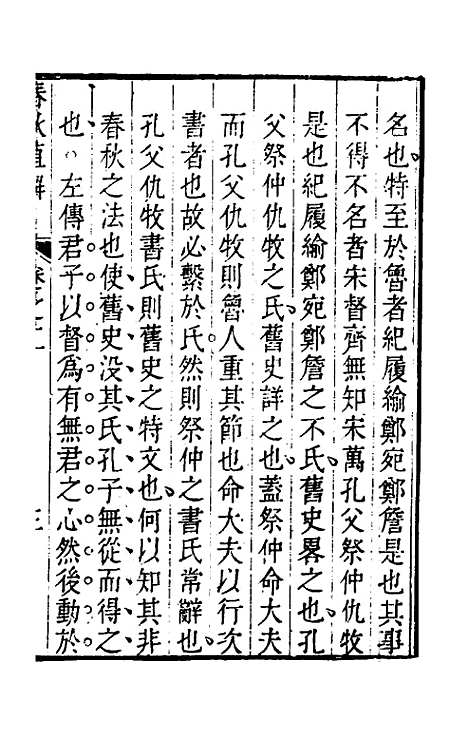 名也特至於魯者紀履緰鄭宛鄭詹是也其事
不得不名者宋督齊無知宋萬孔父祭仲仇牧
是也紀履緰鄭宛鄭詹之不氏舊史畧之也孔
父祭仲仇牧之氏舊史詳之也蓋祭仲命大夫
而孔父仇牧則魯人重其節也命大夫以行次
書者也故必繫於氏然則祭仲之書氏常辭也
孔父仇牧書氏則舊史之特文也何以知其非
春秋之法也使舊史没其氏孔子無從而得之
也○左傳君子以督爲有無君之心然後動於
春秋直解